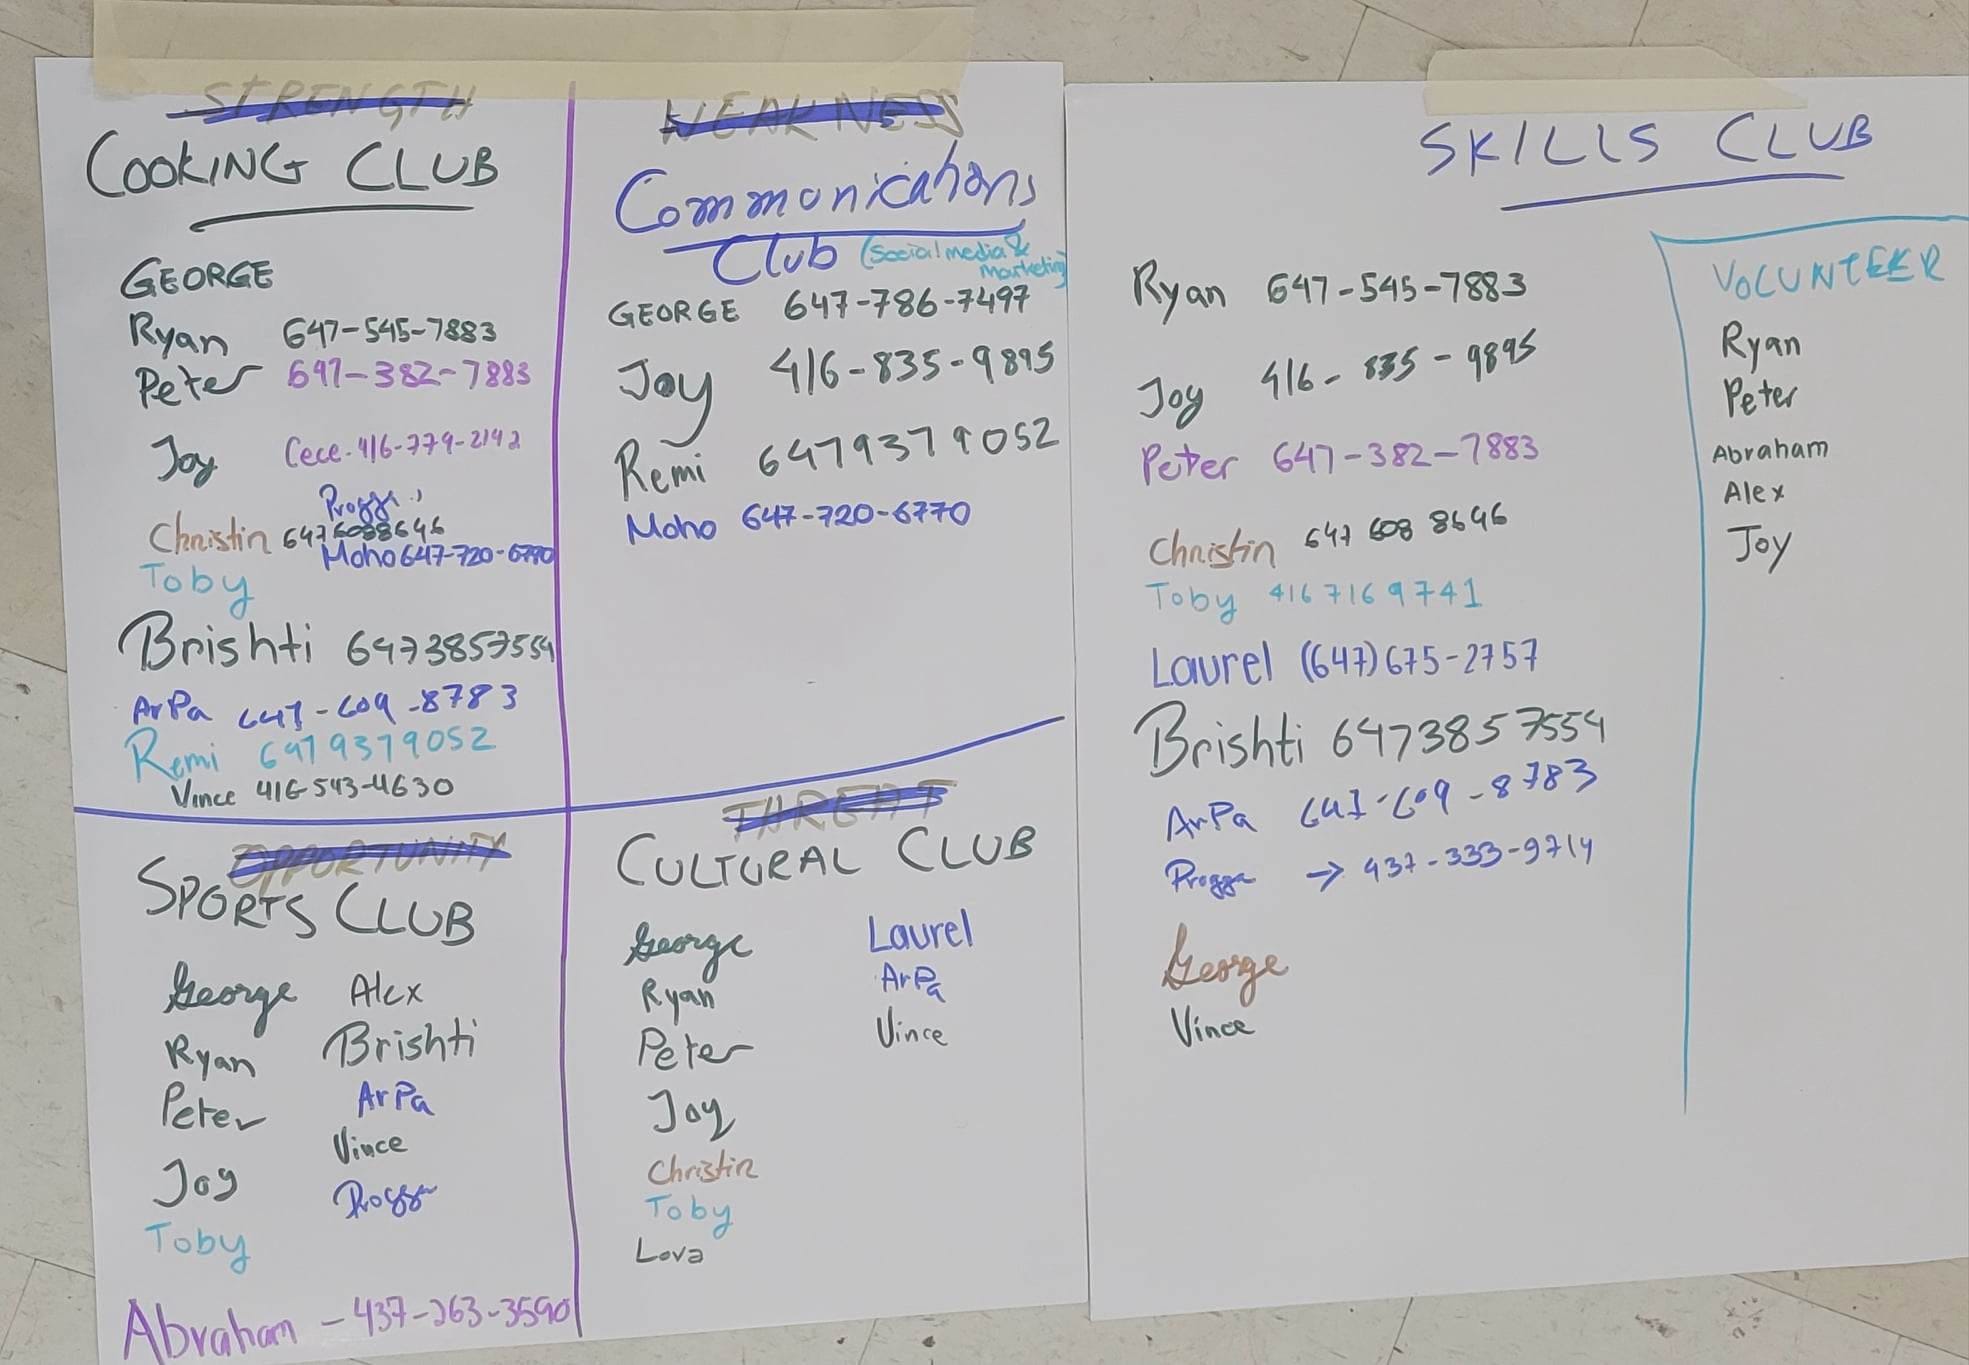 STRENGTH
COOKING CLUB
GEORGE
Ryan 647-545-7883
Peter 647-382-7883
Joy Cece-416-779-2142
Progga
Christin 6476088646
Moho 647-720-6770
Toby
Brishti 6473857554
ArPa 647-609-8783
Remi 6479379052
Vince 416-543-4630
WEAKNESS
Communications
Club (Social media &
marketing)
GEORGE 647-786-7497
Joy 416-835-9895
Remi 6479379052
Moho 647-720-6770
OPPORTUNITY
SPORTS CLUB
George Alex
Ryan Brishti
Peter ArPa
Vince
Joy Progga
Toby
Abraham - 437-263-3590
THREAT
CULTURAL CLUB
George Laurel
Ryan ArPa
Peter Vince
Joy
Christin
Toby
Lova
SKILLS CLUB
Ryan 647-545-7883
Joy 416-835-9895
Peter 647-382-7883
Christin 647 608 8646
Toby 416 716 9741
Laurel (647) 675-2757
Brishti 6473857554
ArPa 647-609-8783
Progga → 437-333-9714
George
Vince
VOLUNTEER
Ryan
Peter
Abraham
Alex
Joy